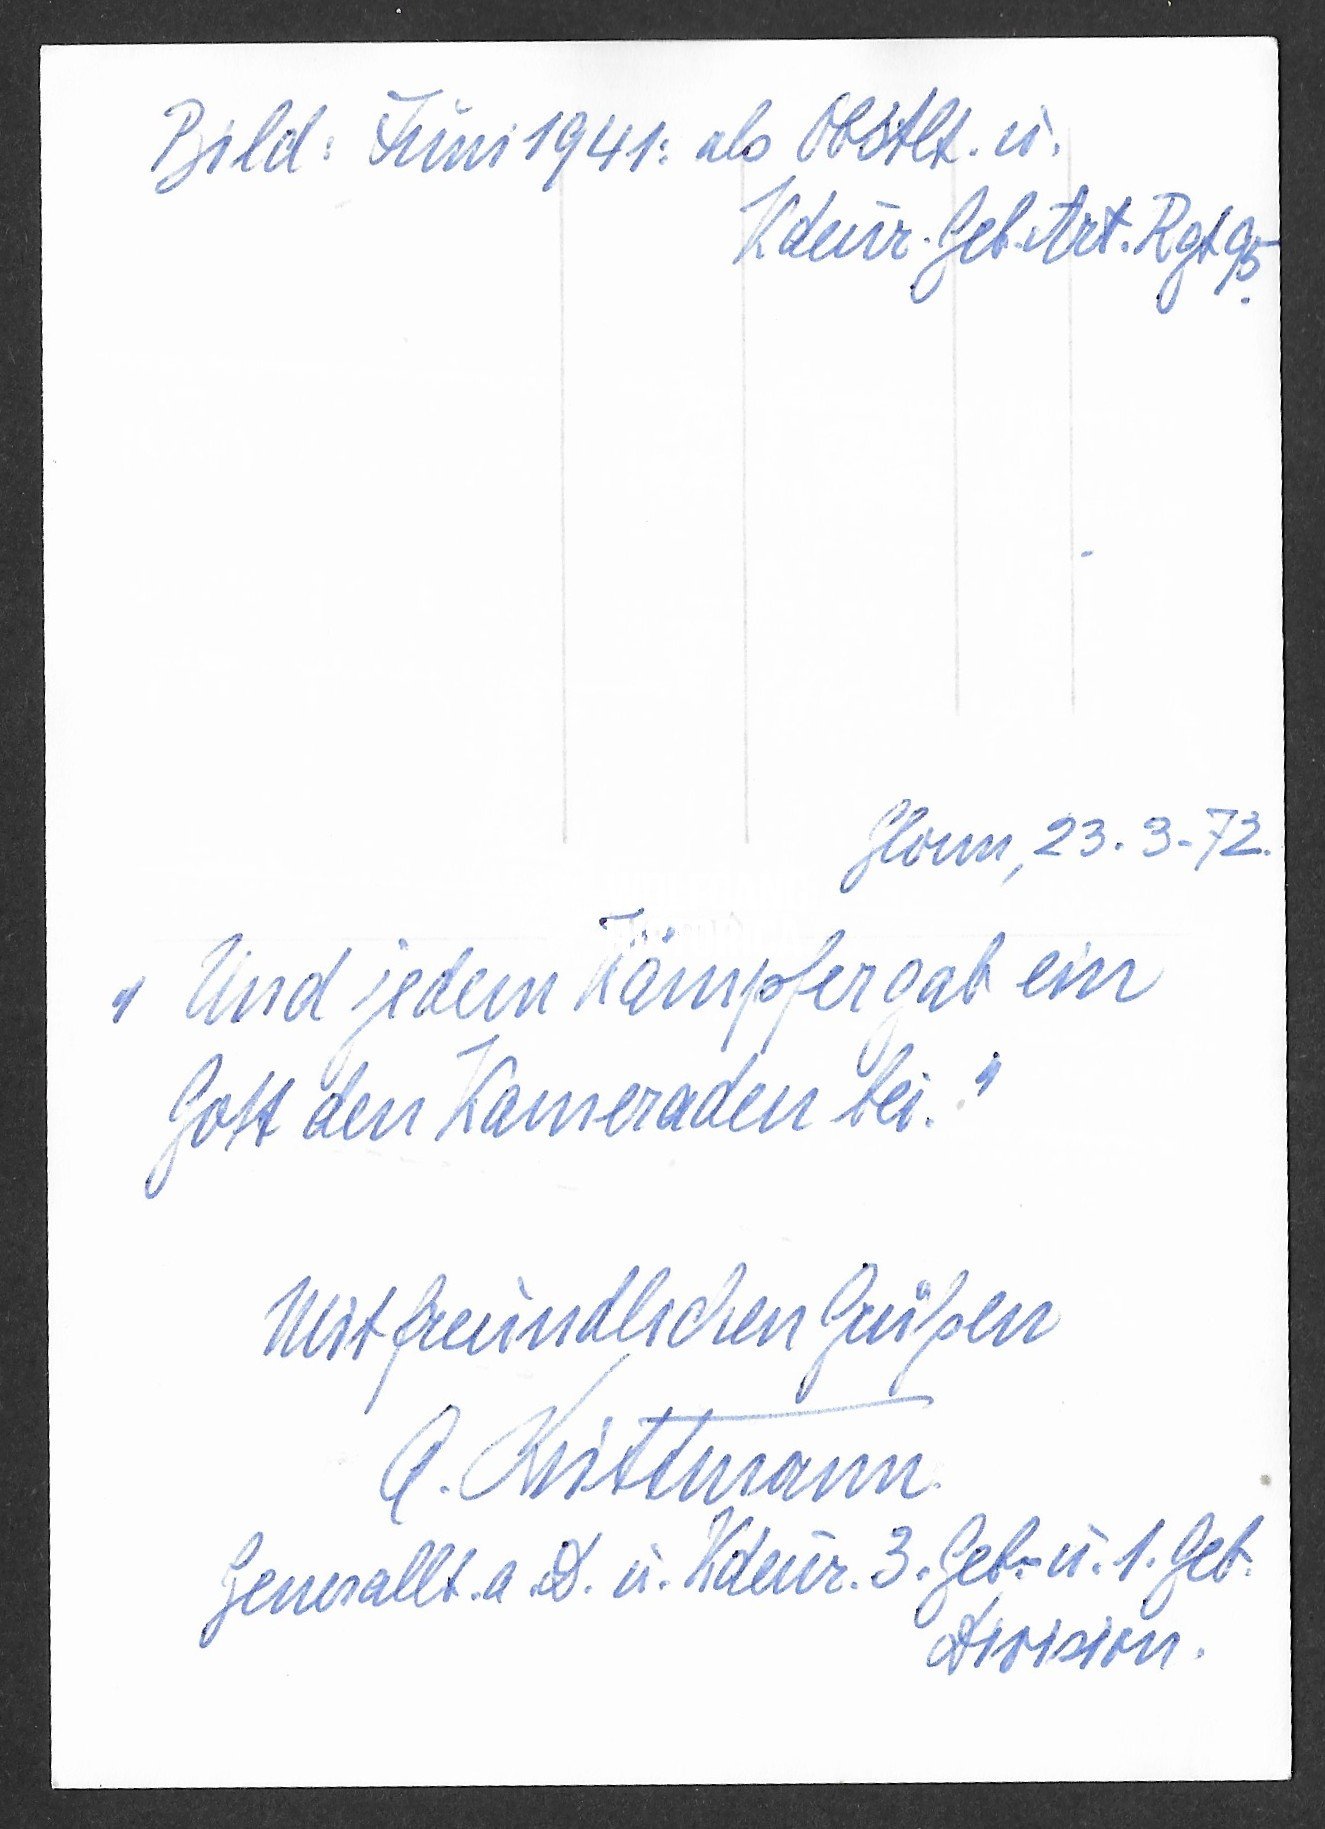 Bild: Juni 1941: als Obstlt. u.
Kdeur. Geb. Art. Rgt 95.
Glonn, 23. 3. 72.
"Und jedem Kämpfer gab ein
Gott den Kameraden bei."
Mit freundlichen Grüßen
A. Wittmann.
Generallt. a. D. u. Kdeur. 3. Geb.- u. 1. Geb.
Division.